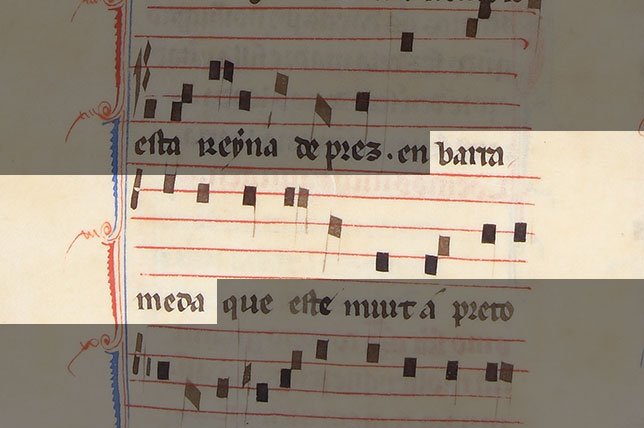 esta Reyna de prez . en barra
meda que este muit á preto